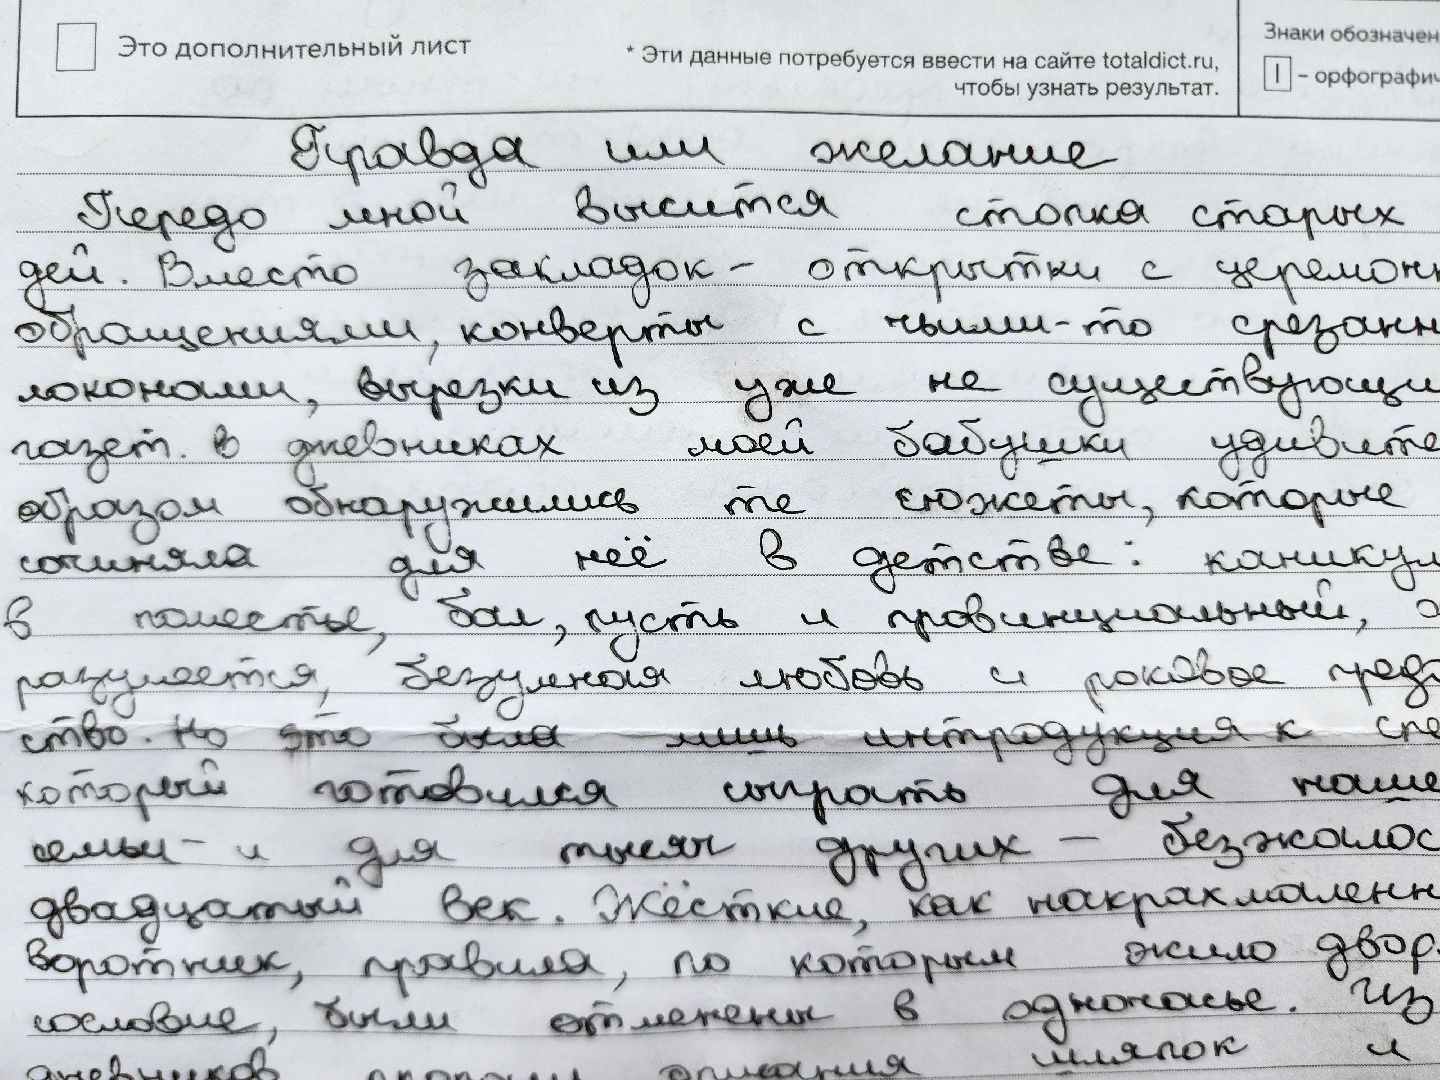 Это дополнительный лист
* Эти данные потребуется ввести на сайте totaldict.ru,
чтобы узнать результат.
Знаки обозначен
I – орфографич
Правда или желание
Передо мной высится стопка старых
дей. Вместо закладок – открытки с церемонн
обращениями, конверты с чьими-то срезанн
локонами, вырезки из уже не существующи
газет. В дневниках моей бабушки удивите
образом обнаружились те сюжеты, которые
сочиняла для неё в детстве: каникул
в поместье, бал, пусть и провинциальный, а
разумеется, безумная любовь и роковое преда
ство. Но это была лишь интродукция к спе
который готовился сыграть для наше
семьи – и для тысяч других – безжалос
двадцатый век. Жёсткие, как накрахмаленн
воротник, правила, по которым жило двор
сословие, были отменены в одночасье. Из
дневников пропали описания шляпок и